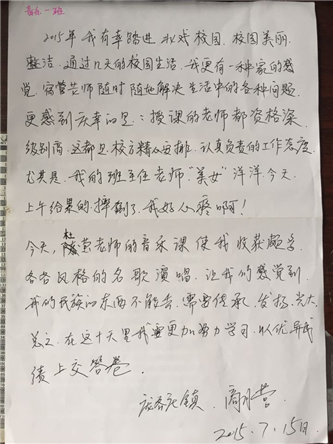 音乐一班
2015年我有幸踏进 戏校园.校园美丽.
整洁.通过几天的校园生活.我更有一种家的感
觉.宿管老师随时随地解决生活中的各种问题.
更感到庆幸的是:授课的老师都资格深.
级别高.这都是校方精心安排.认真负责的工作态度.
尤其是.我的班主任老师"美女"洋洋今天
上午给累的摔倒了.我好心疼啊!
今天,杜 老师的音乐课使我收获 多.
各各风格的名歌演唱.让我的感觉到.
我的民族的东西不能丢.需要传承.发扬.光大.
总之.在这十天里我要更加努力学习.以优异成
绩上交答卷.
镇.
2015.7.15日.